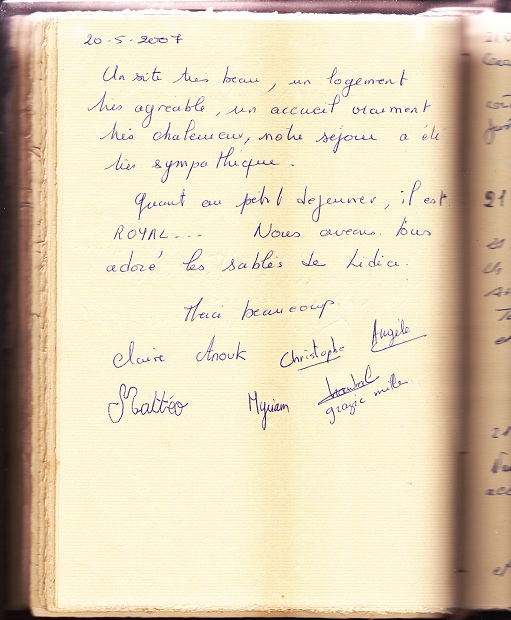 20-5-2007
Un site très beau, un logement
très agréable, un accueil vraiment
très chaleureux, notre séjour a été
très sympathique.
Quant au petit déjeuner, il est
ROYAL... Nous avons tous
adoré les sablés de Lidia.
Merci beaucoup
Claire Anouk Christophe Angèle
Mattéo Myriam Chantal
grazie mille
21
21